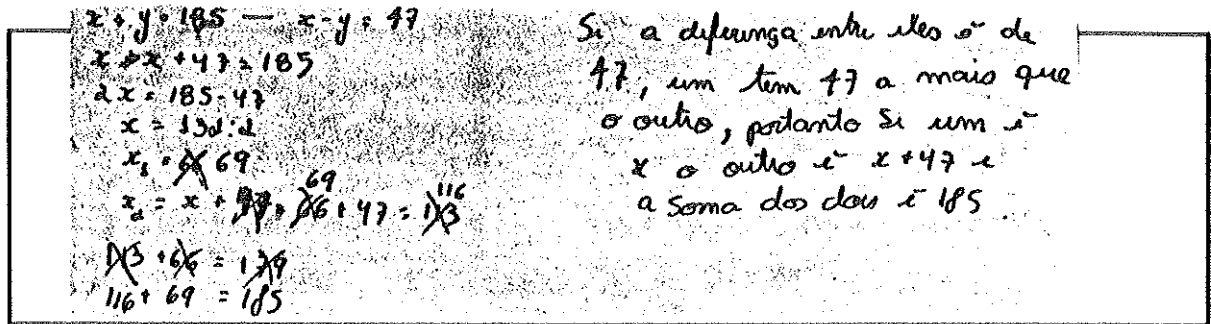 x + y = 185 — x - y = 47
x + x + 47 = 185
2x = 185 - 47
x = 132 : 2
x₁ = 66 69
x₂ = x + 47 = 66 69 + 47 = 113 116
113 + 66 = 179
116 + 69 = 185
Si a diferença entre eles é de
47, um tem 47 a mais que
o outro, portanto Si um é
x o outro é x + 47 e
a soma dos dois é 185